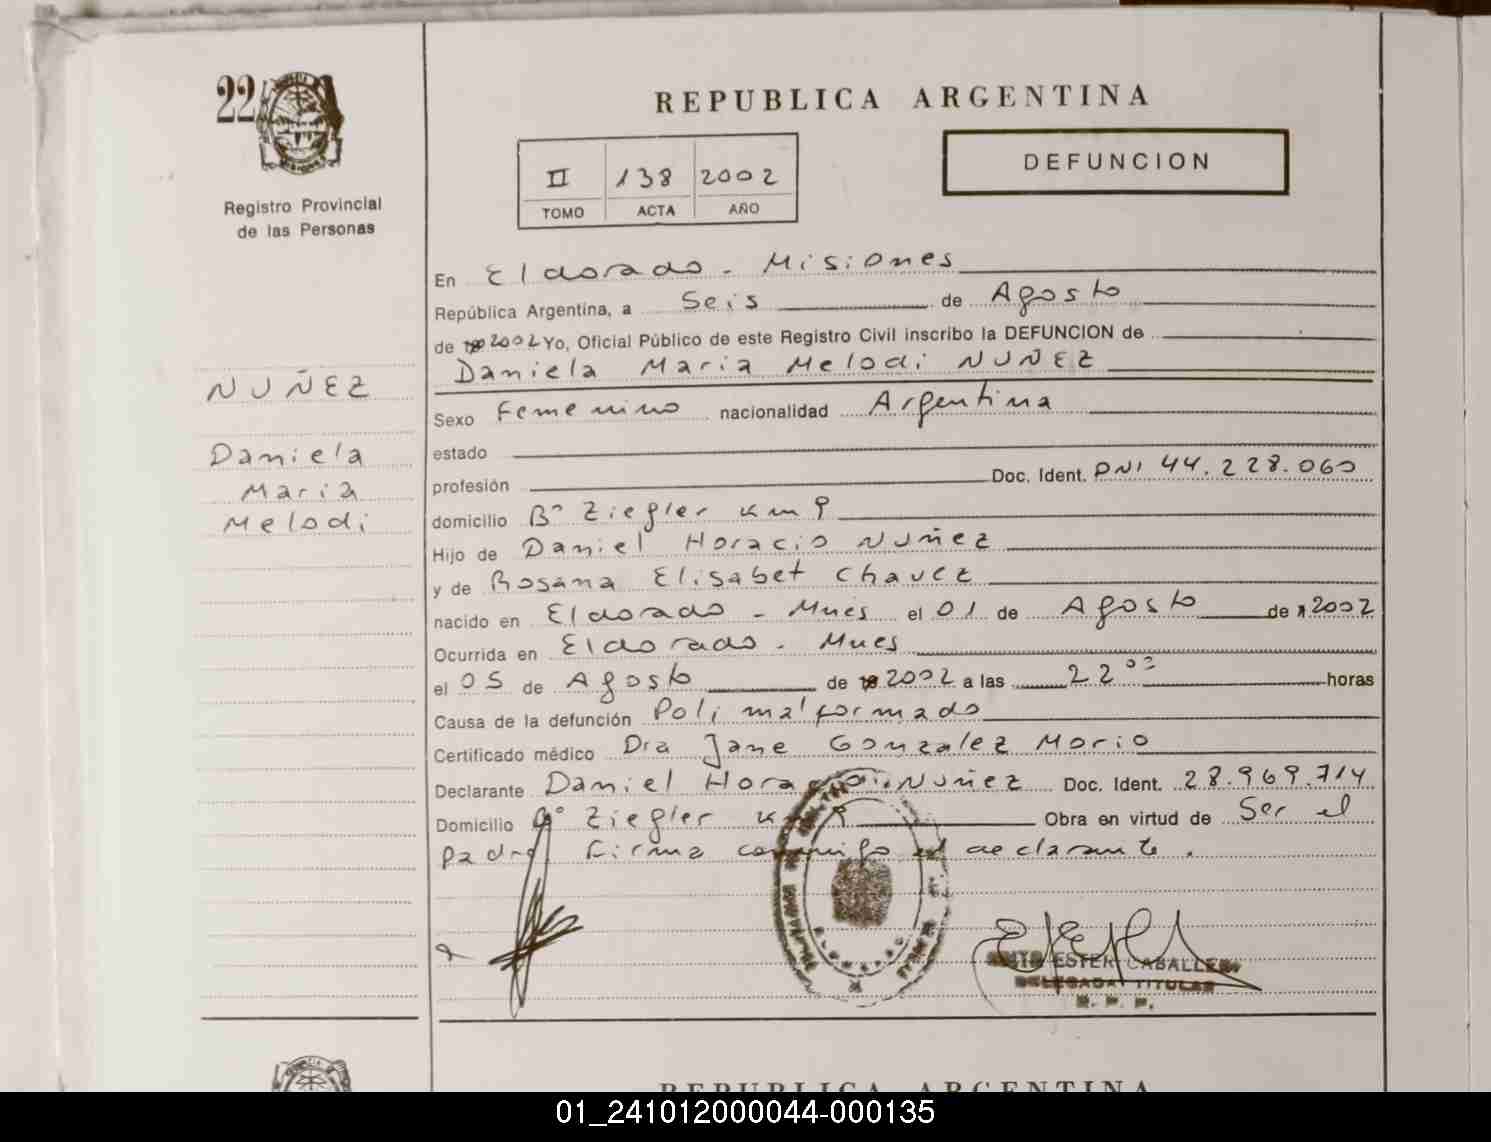 22
REPUBLICA ARGENTINA
II 138 2002
TOMO ACTA AÑO
DEFUNCION
Registro Provincial
de las Personas
NUÑEZ
Daniela
Maria
Melodi
En Eldorado - Misiones
República Argentina, a Seis de Agosto
de 2002 Yo, Oficial Público de este Registro Civil inscribo la DEFUNCION de
Daniela Maria Melodi NUÑEZ
Sexo Femenino nacionalidad Argentina
estado
profesión Doc. Ident. DNI 44.228.060
domicilio Bº Ziegler km 9
Hijo de Daniel Horacio Nuñez
y de Rosana Elisabet Chavez
nacido en Eldorado - Mnes el 01 de Agosto de 2002
Ocurrida en Eldorado - Mnes
el 05 de Agosto de 2002 a las 22⁰⁰ horas
Causa de la defunción Poli malformado
Certificado médico Dra Jane Gonzalez Morio
Declarante Daniel Horacio Nuñez Doc. Ident. 28.969.714
Domicilio Bº Ziegler km 9 Obra en virtud de Ser el
padre Firma conmigo el declarante.
ESTER CABALLERO
DELEGADA TITULAR
R. P. P.
REPUBLICA ARGENTINA
01_241012000044-000135